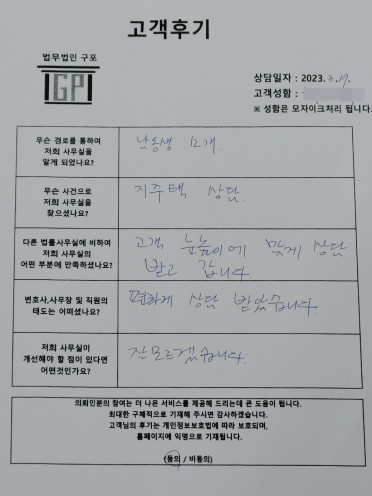 고객후기
법무법인 구포
GP
상담일자 : 2023. 3. 17.
고객성함 :
※ 성함은 모자이크처리 됩니다.
무슨 경로를 통하여
저희 사무실을
알게 되었나요?
남동생 소개
무슨 사건으로
저희 사무실을
찾으셨나요?
지주택 상담.
다른 법률사무실에 비하여
저희 사무실의
어떤 부분에 만족하셨나요?
고객 눈높이에 맞게 상담
받고 갑니다
변호사,사무장 및 직원의
태도는 어떠셨나요?
편하게 상담 받았습니다.
저희 사무실이
개선해야 할 점이 있다면
어떤것인가요?
잘모르겠습니다.
의뢰인분의 참여는 더 나은 서비스를 제공해 드리는데 큰 도움이 됩니다.
최대한 구체적으로 기재해 주시면 감사하겠습니다.
고객님의 후기는 개인정보보호법에 따라 보호되며,
홈페이지에 익명으로 기재됩니다.
(동의 / 비동의)